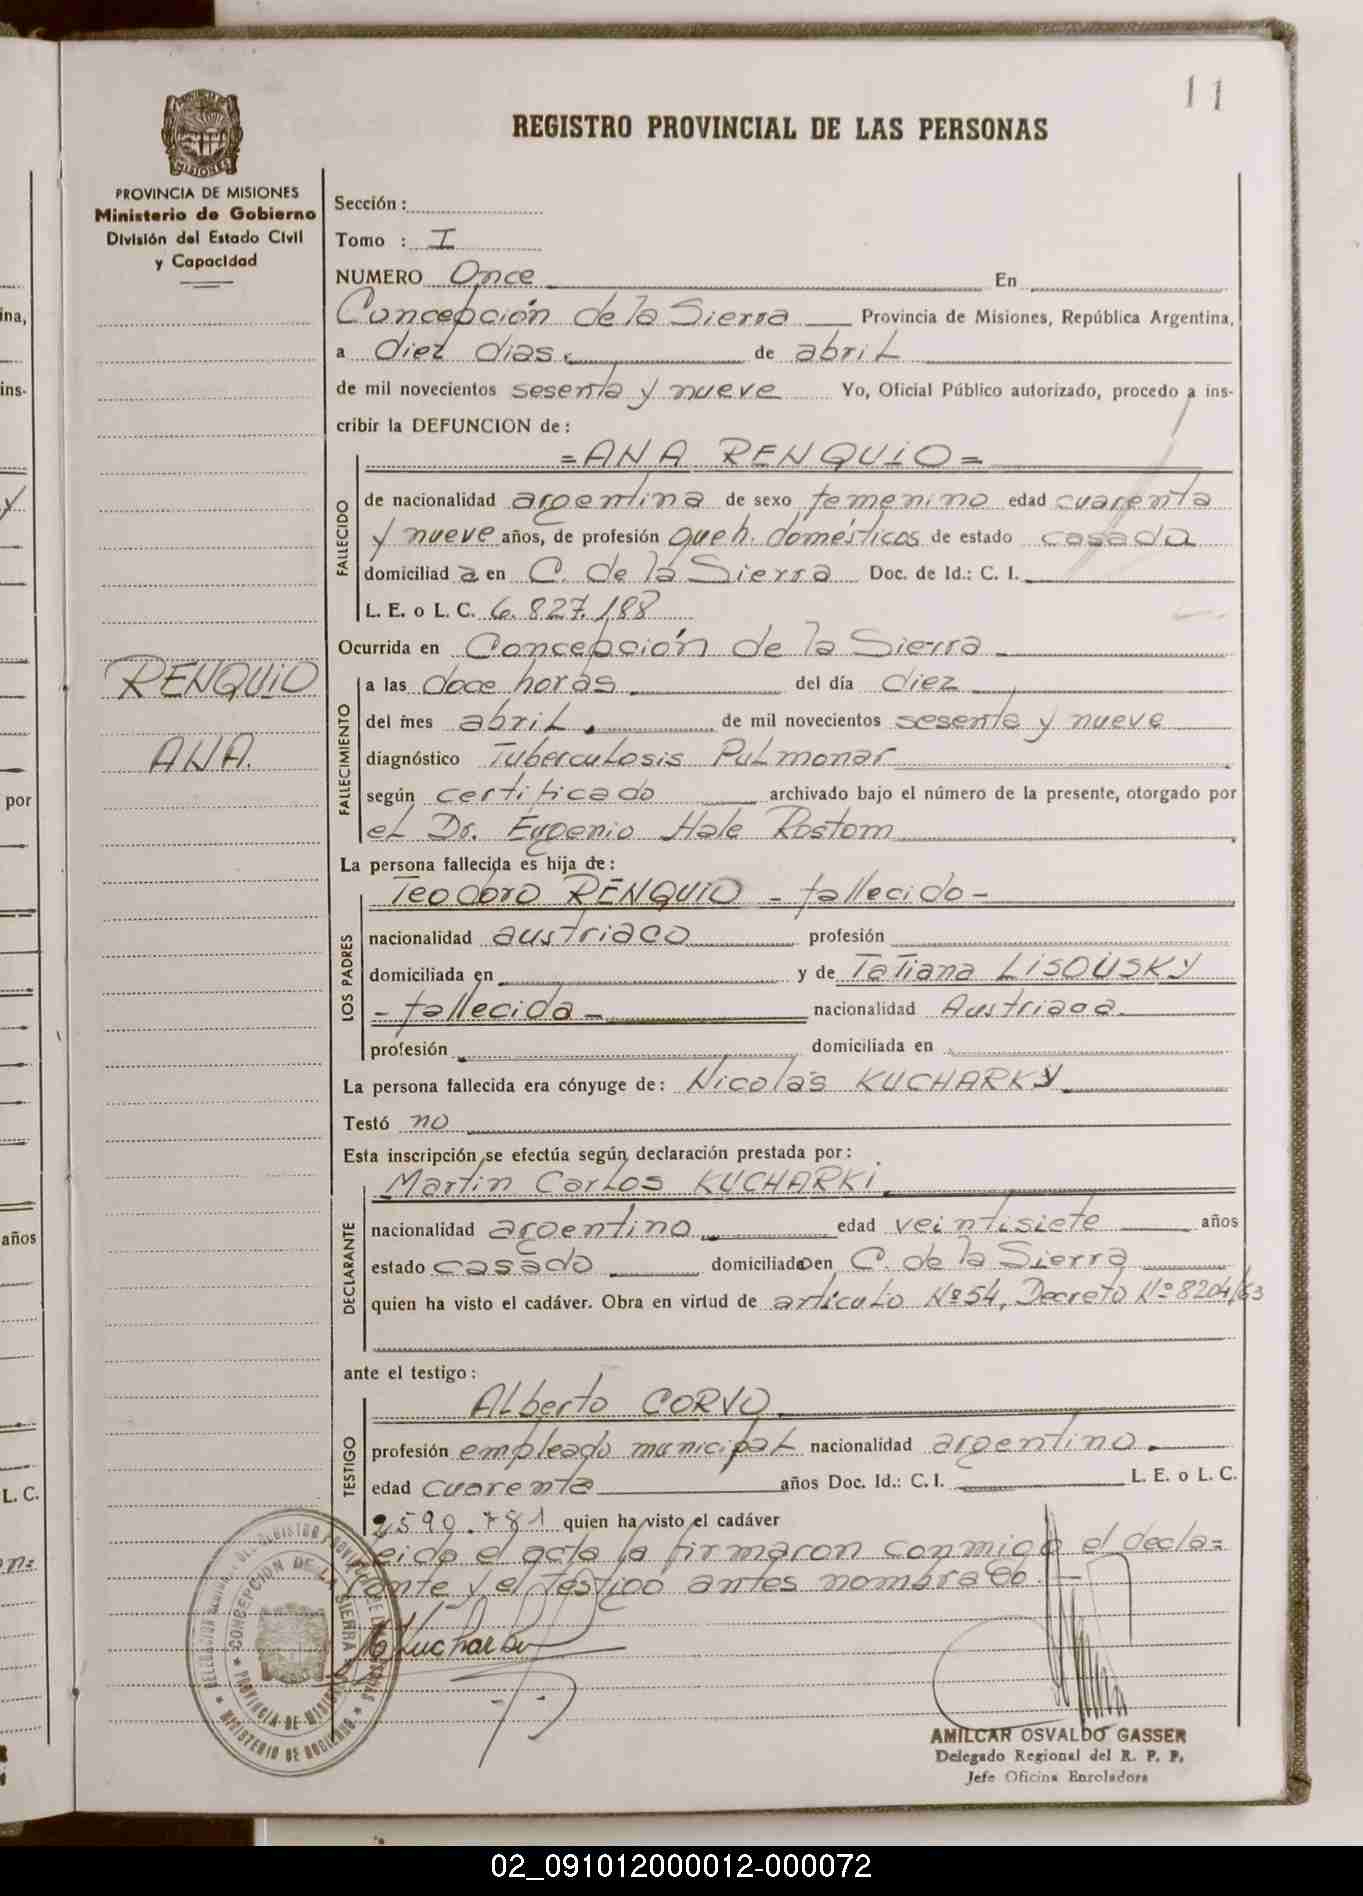 11
REGISTRO PROVINCIAL DE LAS PERSONAS
PROVINCIA DE MISIONES
Ministerio de Gobierno
División del Estado Civil
y Capacidad
Sección:
Tomo : I
NUMERO Once En
Concepción de la Sierra Provincia de Misiones, República Argentina,
a diez dias. de abril
de mil novecientos sesenta y nueve Yo, Oficial Público autorizado, procedo a ins-
cribir la DEFUNCION de:
=ANA RENQUIO=
FALLECIDO
de nacionalidad argentina de sexo femenino edad cuarenta
y nueve años, de profesión queh. domésticos de estado casada
domiciliad a en C. de la Sierra Doc. de Id.: C. I.
L. E. o L. C. 6.827.188
Ocurrida en Concepción de la Sierra
RENQUIO
ANA.
FALLECIMIENTO
a las doce horas del día diez
del mes abril. de mil novecientos sesenta y nueve
diagnóstico Tuberculosis Pulmonar
según certificado archivado bajo el número de la presente, otorgado por
el Dr. Eugenio Hale Rostom
La persona fallecida es hija de:
LOS PADRES
Teodoro RENQUIO - fallecido -
nacionalidad austriaco profesión
domiciliada en y de Tatiana LISOUSKY
- fallecida - nacionalidad Austriaca
profesión domiciliada en
La persona fallecida era cónyuge de: Nicolás KUCHARKY
Testó no
Esta inscripción se efectúa según declaración prestada por:
DECLARANTE
Martin Carlos KUCHARKI
nacionalidad argentino edad veintisiete años
estado casado domiciliado en C. de la Sierra
quien ha visto el cadáver. Obra en virtud de artículo Nº54, Decreto Nº8204/63
ante el testigo:
TESTIGO
Alberto CORVO
profesión empleado municipal nacionalidad argentino.
edad cuarenta años Doc. Id.: C. I. L. E. o L. C.
2590.781 quien ha visto el cadáver
Leido el acta la firmaron conmigo el decla=
rante y el testigo antes nombrado
DELEGACION REGIONAL DEL REGISTRO PROVINCIAL DE LAS PERSONAS
CONCEPCION DE LA SIERRA
PROVINCIA DE MISIONES
MINISTERIO DE GOBIERNO
AMILCAR OSVALDO GASSER
Delegado Regional del R. P. P.
Jefe Oficina Enroladora
ina,
ins-
y
por
años
L. C.
02_091012000012-000072